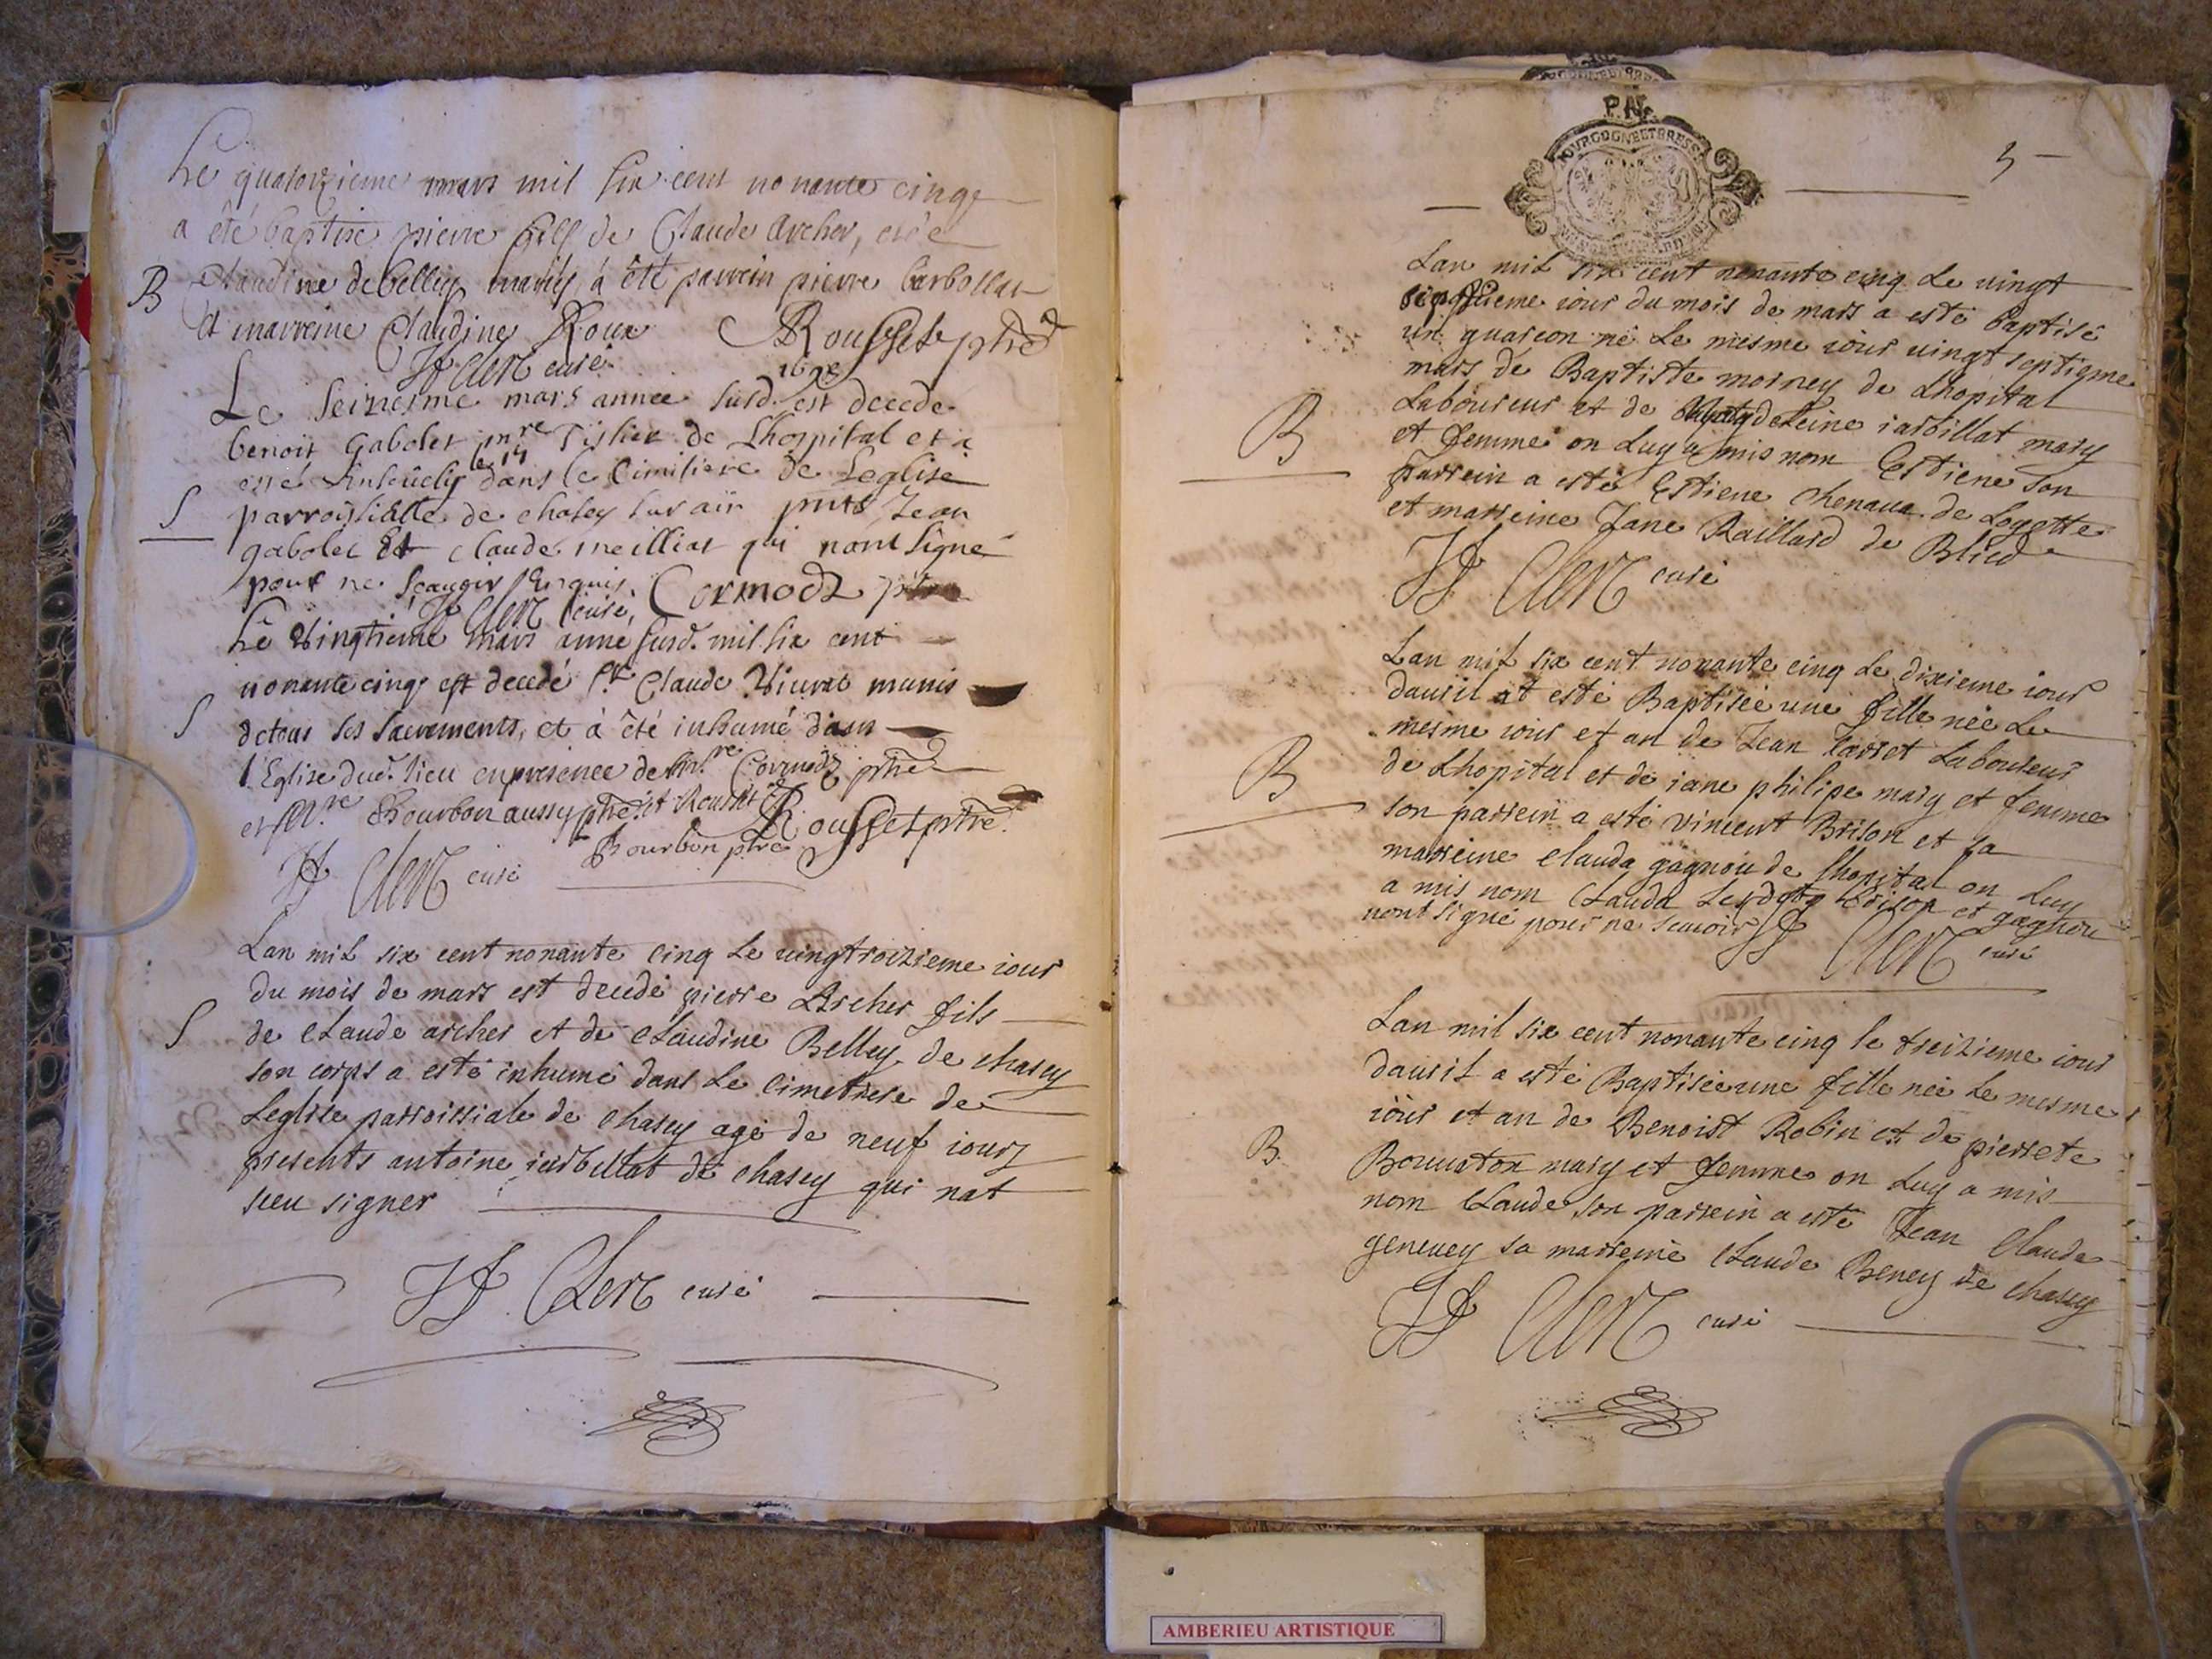 Le quatorzieme mars mil six cent nonante cinq
a été baptisé pierre fils de Claude Archer, et de
B
Claudine de belley mariés, à été parrein pierre barbollat
et marreine Claudine Roux Rousset ptre
JF Clerc curé
1695
Le seiziesme mars annee susd. est decede
benoit Gabolet mre Tislier de Lhospital et a
esté Ensevely le 17 dans le Cimitiere de Leglise
S
parroissialle de chasey sur ain pnts Jean
gabolet Et claude meilliat qui nont signé
pour ne scauoir Enquis. Cormodz ptre
JF Clerc curé,
Le vingtieme mars anné susd. mil six cent
nonante cinq est decedé Sr Claude Vivret munis
S
de tous ses sacrements, et à été inhumé dans
l'Eglise dud. lieu en presence de Mre Cormodz ptre
et Mre Bourbon aussy ptre. et Rousset
Rousset ptre.
Bourbon ptre
JF Clerc curé
Lan mil six cent nonante cinq Le vingtroizieme iour
du mois de mars est decedé pierre Archer fils
S
de Claude archer et de Claudine Belley de chasey
son corps a esté inhumé dans Le cimetiere de
Leglise parroissiale de chasey agé de neuf iours
presents antoine iarbillat de chasey qui nat
sceu signer
JF Clerc curé
P.AL
BOURGOGNE ET BRESSE
5
Lan mil six cent nonante cinq Le vingt
septieme iour du mois de mars a esté baptisé
un guarcon né Le mesme iour vingt septieme
mars de Baptiste morney de Lhopital
Laboureur et de iarbillat mary
B
et femme on Luy a mis nom Estiene son
parrein a esté Estiene chenaua de Loyette
et marreine Jane Raillard de Blied
JF Clerc curé
Lan mil six cent nonante cinq Le dixieme iour
dauril at esté Baptisée une fille née Le
mesme iour et an de Jean Carret Laboureur
B
de Lhopital et de iane philipe mary et femme
son parrein a esté vincent Brison et sa
marreine Clauda gagnou de lhopital on Luy
a mis nom Clauda Lesdits Brison et gagnou
nont signé pour ne scauoir JF Clerc curé
Lan mil six cent nonante cinq le treizieme iour
dauril a esté Baptisée une fille née Le mesme
iour et an de Benoist Robin et de pierrete
B
Bouuaton mary et femme on Luy a mis
nom Claude son parrein a esté Jean Claude
geneuey sa marreine Claude Beney de chasey
JF Clerc curé
AMBERIEU ARTISTIQUE